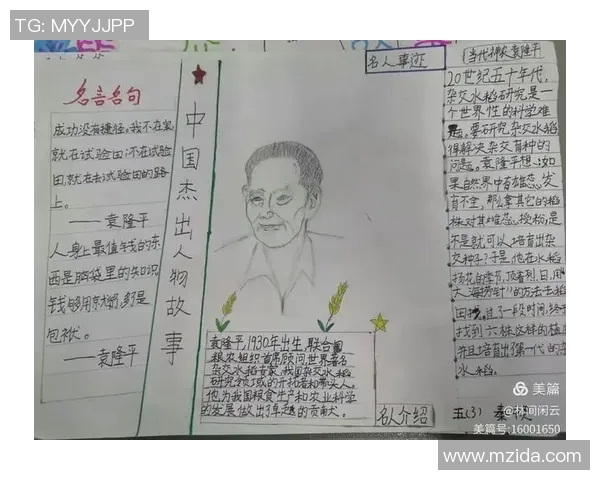 TG: MYYJJPP
名言名句
成功没有捷径。我不在家
就在试验田;不在试验
田,就在去试验田的路
上。
——袁隆平
人身上最值钱的东
西是脑袋里的知识
钱够用就行,多是
包袱。
——袁隆平
中国杰出人物故事
名人事迹
袁隆平,1930年出生,联合国
粮农组织首席顾问世界著名
杂交水稻专家,我国杂交水稻
研究领域的开拓者和带头人。
他为我国粮食生产和农业科学
的发展做出了卓越的贡献大。
名人介绍
当代神农袁隆平
20世纪五十年代,
杂交水稻研究是一
个世界性的科学难
题。要研究杂交水稻
得解决杂交育种的
问题。袁隆平想:如
果自然界中有雄蕊发
育不全,那么拿其它的稻
株对其雌蕊授粉,是
不是就可以培育出杂
交种子?于是,他在水稻
扬花的季节,顶着烈日,用
大海捞针"的方法去稻
田找。过了一段时间,终于
找到六株这样的植
并且培育出了第一代的杂
水稻。
五(3) 秦
美篇
@林间闲云
美篇号:16001650
www.mzida.com